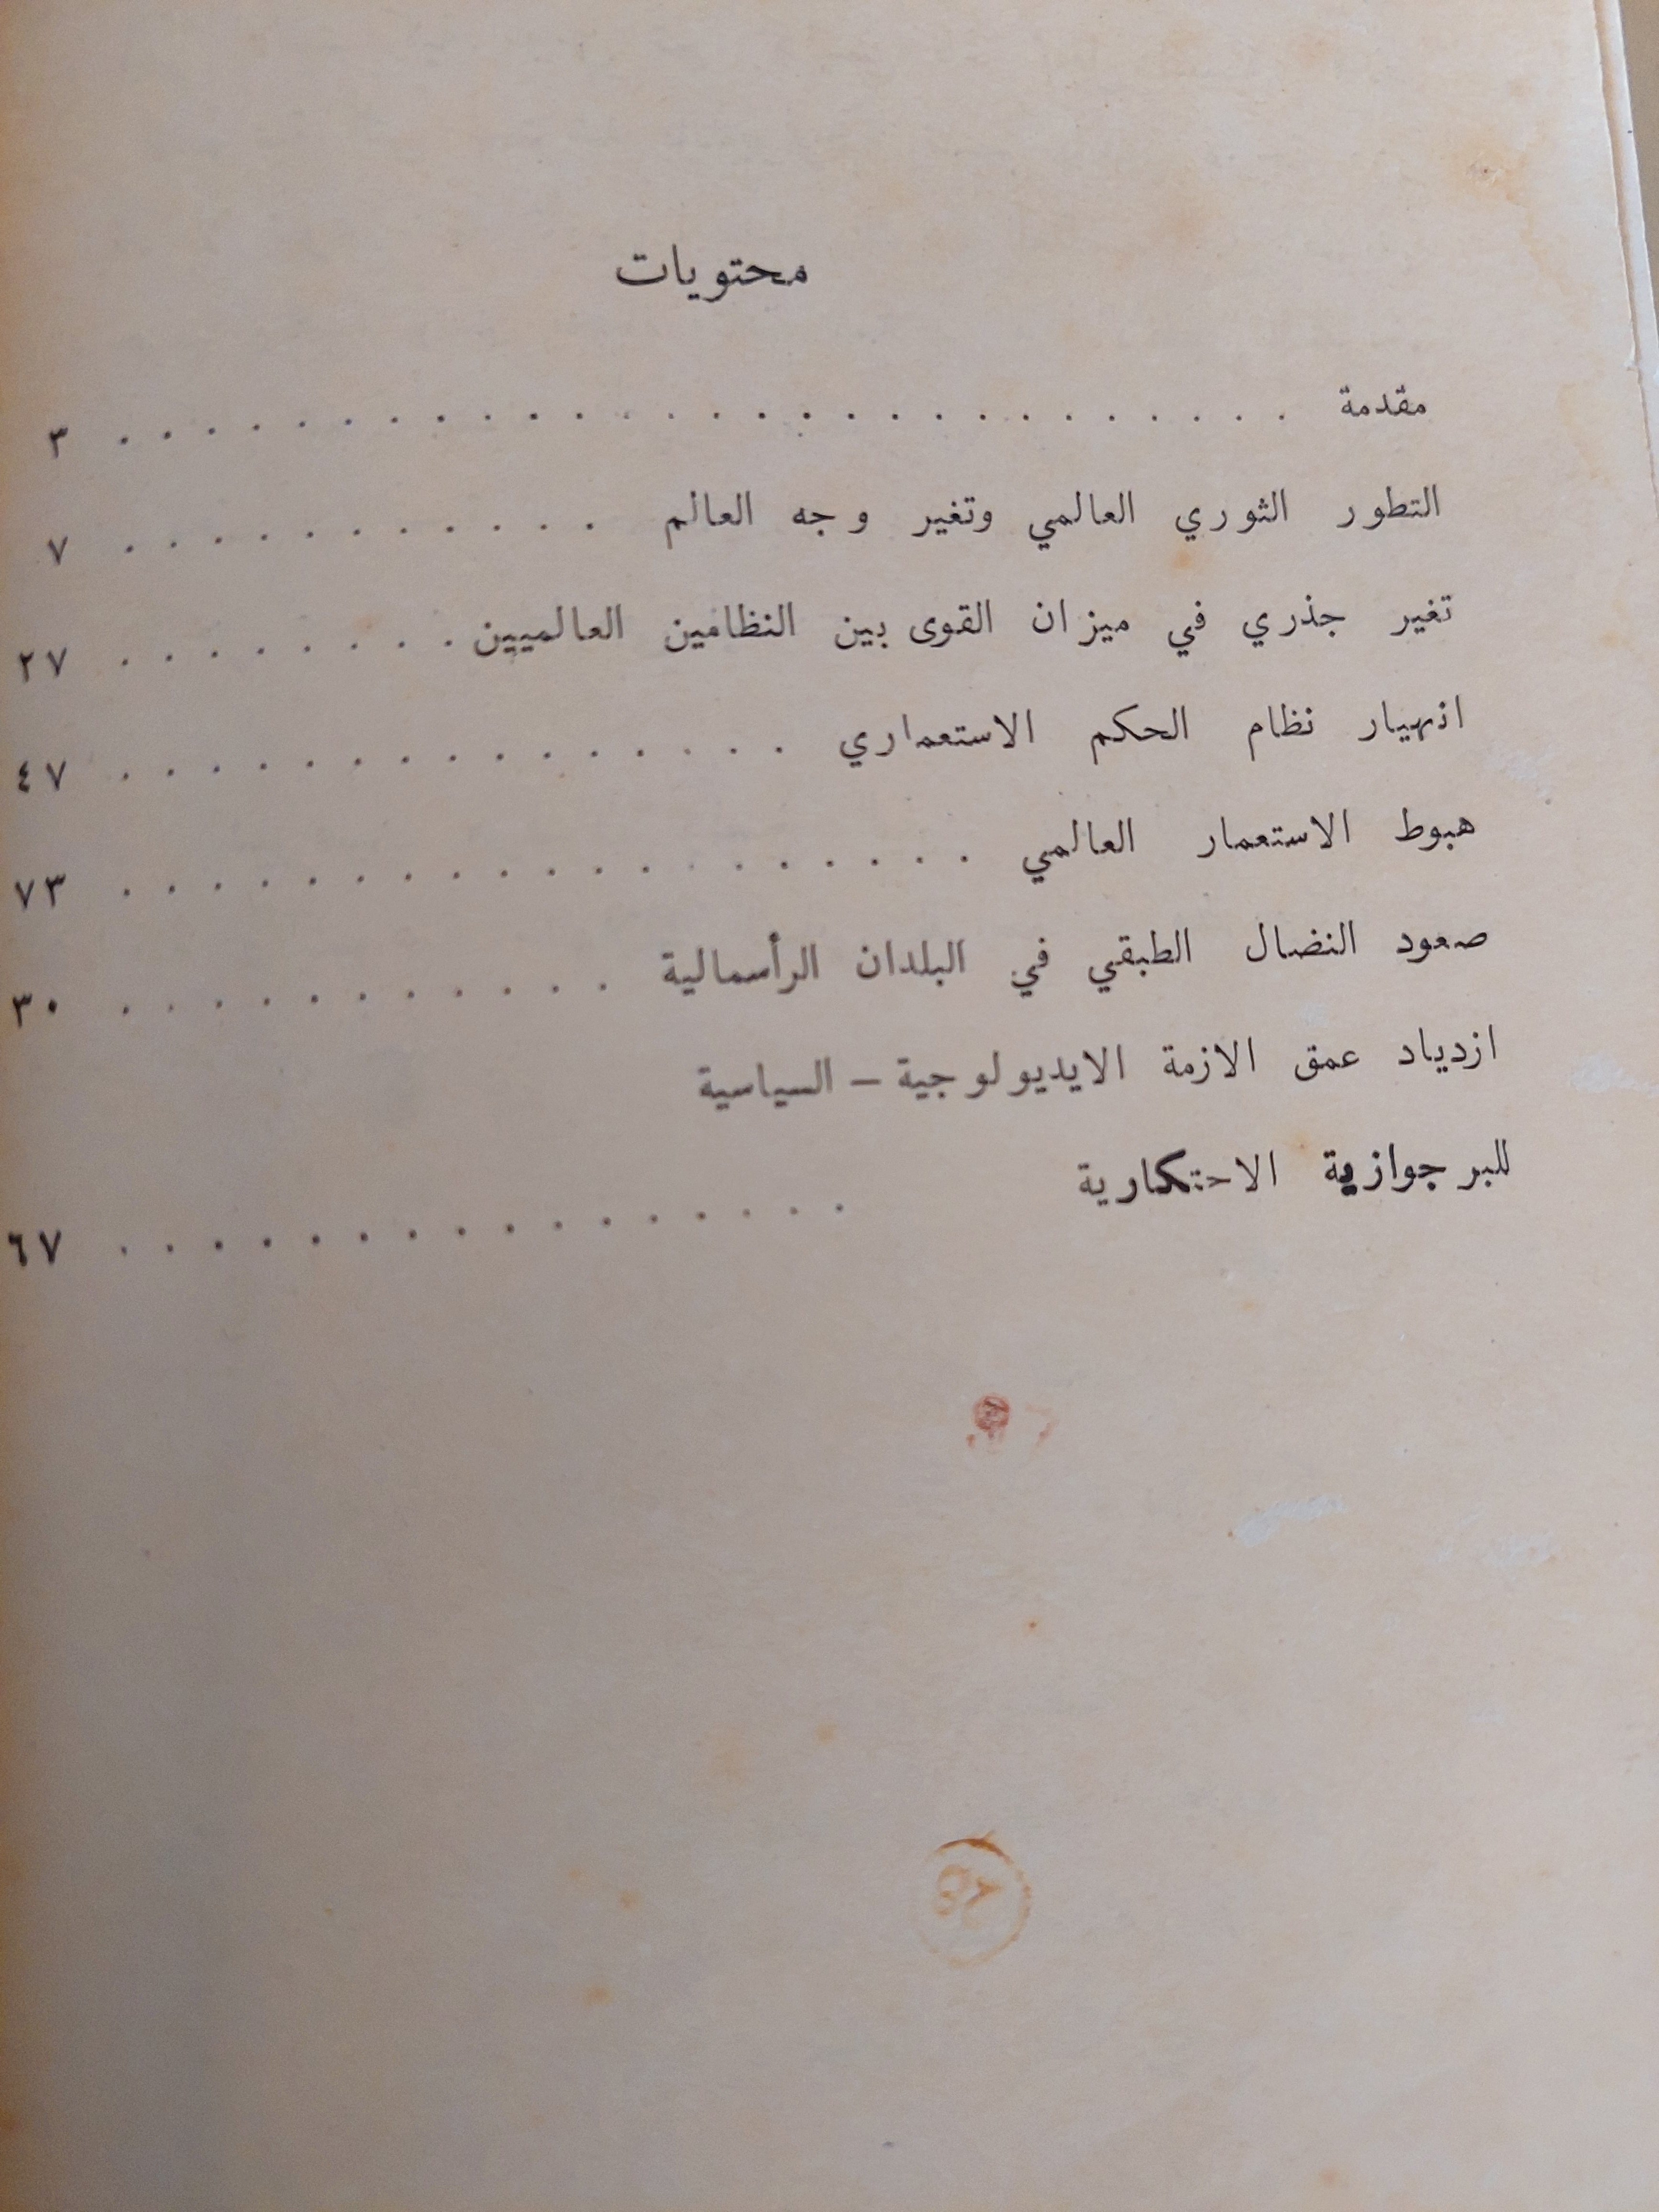 محتويات
مقدمة . . . . . . . . . . . . . . . . . . . . . . . . . . ٣
التطور الثوري العالمي وتغير وجه العالم . . . . . . . . . . . ٧
تغير جذري في ميزان القوى بين النظامين العالميين . . . . . . . . ٢٧
انهيار نظام الحكم الاستعماري . . . . . . . . . . . . . . . ٤٧
هبوط الاستعمار العالمي . . . . . . . . . . . . . . . . . . ٧٣
صعود النضال الطبقي في البلدان الرأسمالية . . . . . . . . . . . ٣٠
ازدياد عمق الازمة الايديولوجية – السياسية
للبرجوازية الاحتكارية . . . . . . . . . . . . . . . . ٦٧